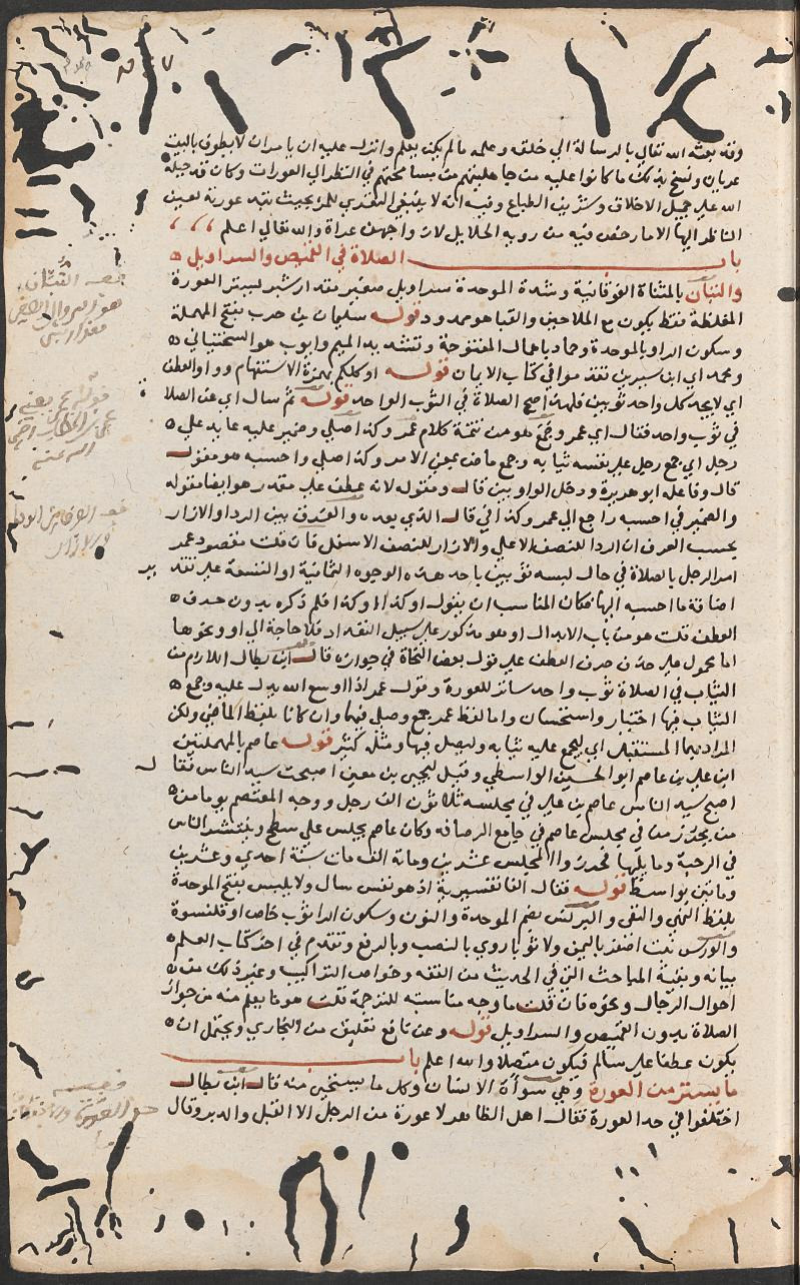 وقد بعثه الله تعالي بالرسالة الي خلقه وعلمه مالم يكن يعلم وانزل عليه ان يامران لا يطوف بالبيت
عريان ونسخ بذلك ما كانوا عليه من جاهليتهم من مسامحتهم في النظر الي العورات وكان قد جبله
الله علي جميل الاخلاق وشريف الطباع وفيه انه لا ينبغي التعري للمرء بحيث تبدو عورته لعين
الناظر اليها الا ما رخص فيه من روية الحلايل لازواجهن عراة والله تعالي اعلم
باب الصلاة في القميص والسراويل ه
والتبان بالمثناة الفوقانية وشدة الموحدة سراويل صغير مقدار شبر ليستر العورة
المغلظة فقط يكون مع الملاحين والقبا هو ممدود قوله سليمان بن حرب بفتح المهملة
وسكون الرا وبالموحدة وحماد باهمال المفتوحة وتشديد الميم وايوب هو السختياني ه
ومحمد اي ابن سيرين تقدموا في كتاب الايمان قوله اوكلكم بهمزة الاستفهام وواو العطف
اي لا يجد كل واحد ثوبين فلهذا صح الصلاة في الثوب الواحد قوله ثم سال اي عن الصلا
في ثوب واحد فقال اي عمر وجمع هو من تتمة كلام عمر وكذا صلي وضمير عليه عايد علي ه
رجل اي جمع رجل علي نفسه ثيابه وجمع ماض بمعني الامر وكذا صلي واحسبه هو مقول
قال وفاعله ابو هريرة ودخل الواو بين قال ومقوله لانه عطف علي مقدر هو ايضا مقوله
والضمير في احسبه راجع الي عمر وكذا في قال الذي بعده والفرق بين الردا والازار
بحسب العرف ان الردا للنصف الاعلي والازار للنصف الاسفل فان قلت مقصود عمر
امر الرجل بالصلاة في حال لبسه ثوبين باحد هذه الوجوه الثمانية او التسعة علي تقدير
اضافة ما احسبه اليها فكان المناسب ان يقول او كذا او كذا فلم ذكره بدون حرف ه
العطف قلت هو من باب الابدال او هو مذكور علي سبيل التعداد فلا حاجة الي او ونحوها
اما محمول علي حذف حرف العطف علي قول بعض النحاة في جوازه قال ابن بطال اللازم من
الثياب في الصلاة ثوب واحد ساتر للعورة وقول عمر اذا اوسع الله يدل عليه وجمع ه
الثياب فيها اختيار واستحسان واما لفظ عمر جمع وصلي فهما وان كانا بلفظ الماضي ولكن
المراد بهما المستقبل اي ليجمع عليه ثيابه وليصل فيها ومثله كثير قوله عاصم بالمهملتين
ابن علي بن عاصم ابو الحسين الواسطي وقيل ليحيي بن معين اصبحت سيد الناس فقال
اصبح سيد الناس عاصم بن علي في مجلسه ثلاثون الف رجل ووجه المعتصم يوما من ه
من يحزر من في مجلس عاصم في جامع الرصافه وكان عاصم يجلس علي سطح وينتشر الناس
في الرحبة وما يليها فحزروا المجلس عشرين وماية الف مات سنة احدي وعشرين
ومايتين بواسط قوله فقال الفا تفسيرية اذ هو نفس سال ولا يلبس بفتح الموحدة
بلفظ النهي والنفي والبرنس بضم الموحدة والنون وسكون الرا ثوب خاص او قلنسوة
والورس نبت اصفر باليمن ولا ثوبا روي بالنصب وبالرفع وتقدم في اخر كتاب العلم ه
بيانه وبقية المباحث التي في الحديث من الفقه وخواص التراكيب وغير ذلك من ه
احوال الرجال ونحوه فان قلت ما وجه مناسبته للترجمة قلت هو ما يعلم منه من جواز
الصلاة بدون القميص والسراويل قوله وعن نافع تعليق من البخاري ويحتمل ان ه
يكون عطفا علي سالم فيكون متصلا والله اعلم باب
ما يستر من العورة وهي سوأة الانسان وكل ما يستحيي منه قال ابن بطال
اختلفوا في حد العورة فقال اهل الظاهر لا عورة من الرجل الا القبل والدبر وقال